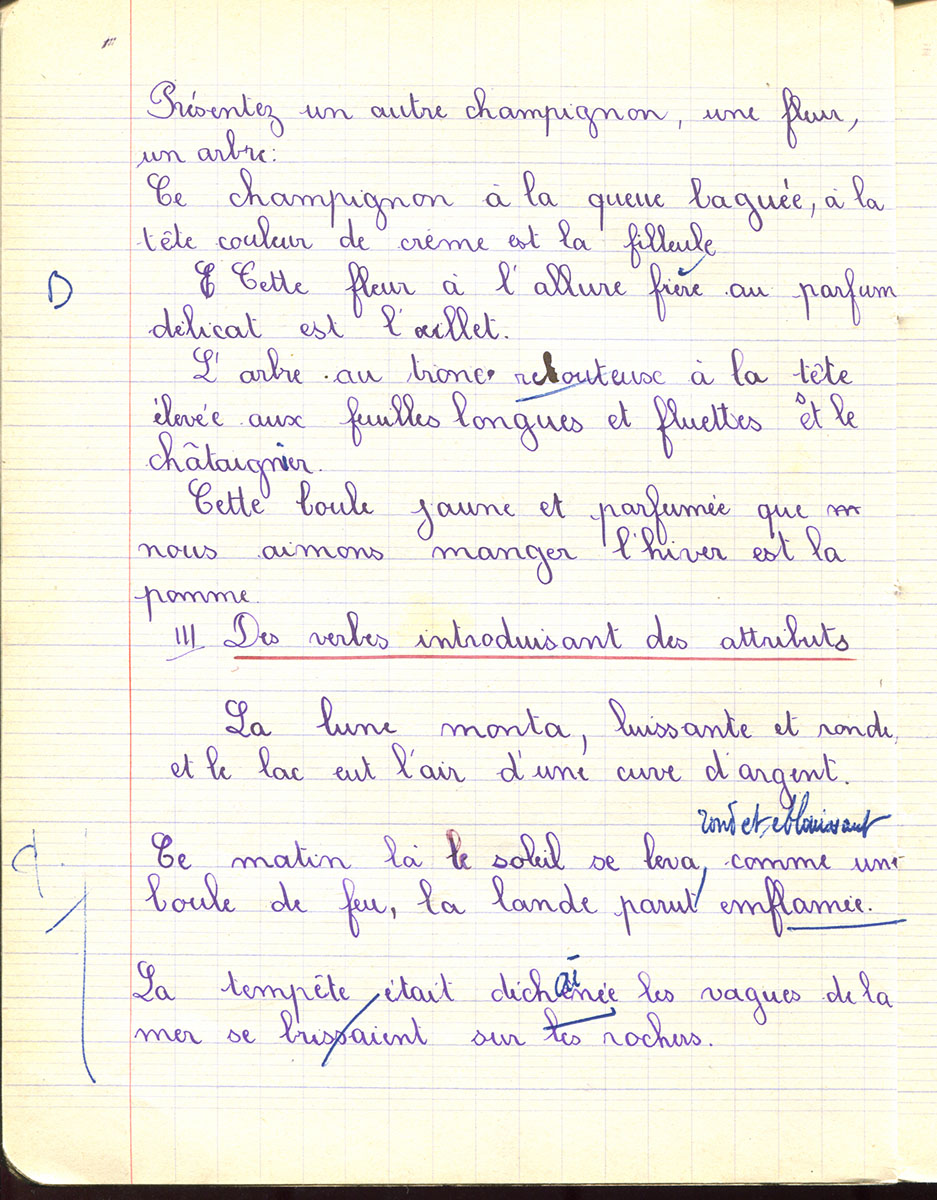 Présentez un autre champignon, une fleur,
un arbre:
Ce champignon à la queue baguée, à la
tête couleur de crème est la filleule
D
Cette fleur à l'allure fière au parfum
délicat est l'œillet.
L'arbre au tronc à la tête
élevée aux feuilles longues et fluettes et le
châtaignier.
Cette boule jaune et parfumée que
nous aimons manger l'hiver est la
pomme.
III Des verbes introduisant des attributs
La lune monta, luissante et ronde,
et le lac eut l'air d'une cuve d'argent.
rond et eblouissant
Ce matin là le soleil se leva, comme une
boule de feu, la lande parut emflamée.
La tempête était déchainée les vagues de la
mer se brissaient sur les rochers.